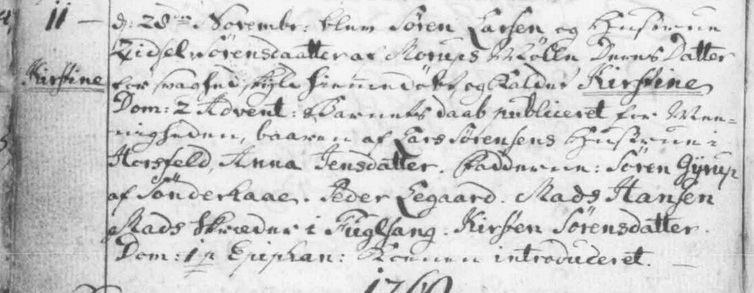 11 — d: 28de Novembr: blew Søren Larsen og Hustrue
Zidsel Sørensdaatter af Morups Mølle Deres Datter
Kirstine for svaghed skyld hiemmedøbt, og kaldet Kirstine
Dom: 2 Advent: Barnets daab publiceret for Mee-
nigheden, baaren af Lars Sørensens Hustrue i
Horsfeld, Anna Jensdatter. Fadderne: Søren Gÿrup
af Sønderhaae. Peder Legaard. Mads Hansen
Mads Skræder i Fuglsang. Kirsten Sørensdatter.
Dom: 1 p Epiphan: Konen introduceret. —
1769